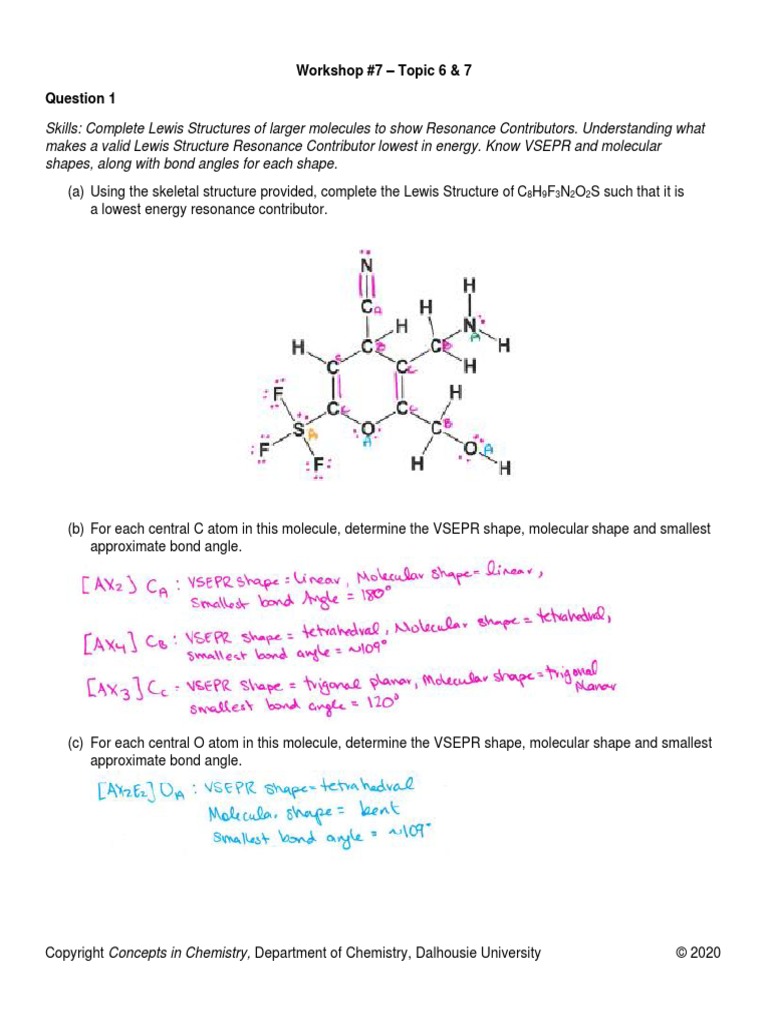 Workshop #7 – Topic 6 & 7
Question 1
Skills: Complete Lewis Structures of larger molecules to show Resonance Contributors. Understanding what
makes a valid Lewis Structure Resonance Contributor lowest in energy. Know VSEPR and molecular
shapes, along with bond angles for each shape.
(a) Using the skeletal structure provided, complete the Lewis Structure of C₈H₉F₃N₂O₂S such that it is
a lowest energy resonance contributor.
N
H
C A H
H N A H
H C B C B H
C C C C
F H
C C C C
S A O A C B
F F H O A H
(b) For each central C atom in this molecule, determine the VSEPR shape, molecular shape and smallest
approximate bond angle.
[AX2] CA : VSEPR shape = linear, Molecular shape = linear,
smallest bond Angle = 180°
[AX4] CB : VSEPR shape = tetrahedral, Molecular shape = tetrahedral,
smallest bond angle = ~109°
[AX3] Cc = VSEPR shape = trigonal planar, Molecular shape = trigonal
planar
smallest bond angle = 120°
(c) For each central O atom in this molecule, determine the VSEPR shape, molecular shape and smallest
approximate bond angle.
[AX2E2] OA : VSEPR shape = tetrahedral
Molecular shape = bent
smallest bond angle = ~109°
Copyright Concepts in Chemistry, Department of Chemistry, Dalhousie University © 2020